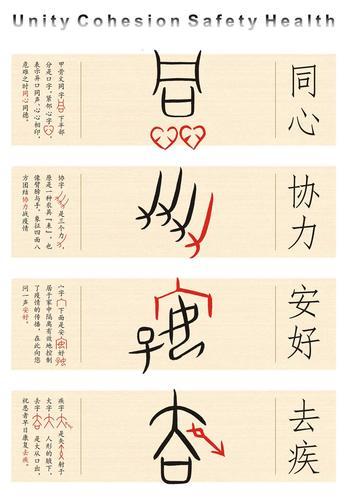 Unity Cohesion Safety Health
同心
甲骨文同字下半部
分是口字，紧邻心字，
表示异口同声，心心相印，
危难之时同心同德。
协力
协字是三个力，
原是一种农具「耒」，也
像臂膀与手，象征四面八
方团结协力战疫情
安好
宀字下面是安好
居于家中隔离有效地控制
了疫情的传播，在此向您
问一声安好。
去疾
疾字是矢射于
大字人形的腋下，
去字是大从口出，
祝患者早日康复去疾。